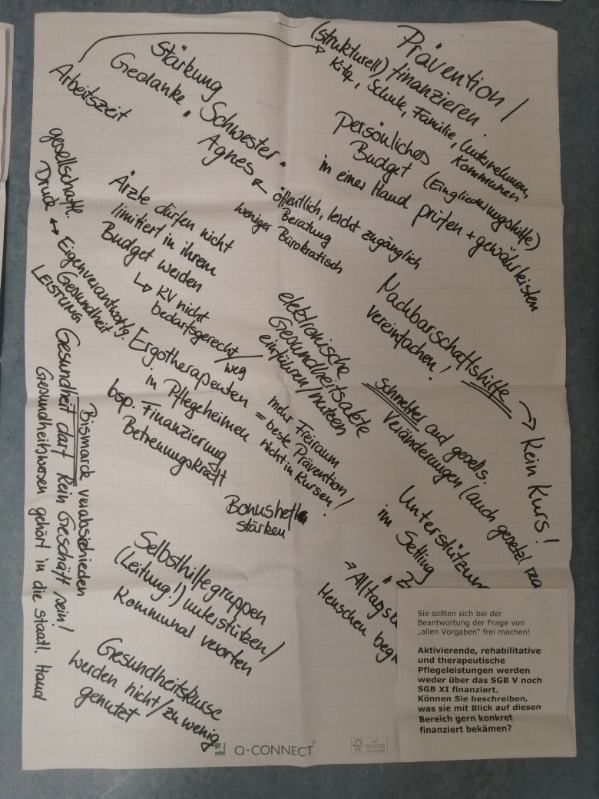 Prävention!
(strukturell) finanzieren.
Kita, Schule, Familie, Unternehmen,
Kommunen
Stärkung
Gedanke "Schwester
Agnes"
öffentlich, leicht zugänglich
Beratung
weniger Bürokratisch
Arbeitszeit
persönliches
Budget (Eingliederungshilfe)
in einer Hand prüfen + gewährleisten
gesellschaftl.
Druck
Eigenverantwortg.
Gesundheit
LEISTUNG
Ärzte dürfen nicht
limitiert in ihrem
Budget werden
KV nicht
bedarfsgerecht/weg
Nachbarschaftshilfe
vereinfachen!
Kein Kurs!
elektronische
Gesundheitsakte
einführen/nutzen
Schneller auf gesells.
Veränderungen (auch gesetzl.
Ergotherapeuten
in Pflegeheimen
bsp. Finanzierung
Betreuungskraft
mehr Freiraum
= beste Prävention
nicht in Kursen!
Bonusheft
stärken
Unterstützung
im Setting
Alltags
Menschen
Bismarck verabschieden
Gesundheit darf kein Geschäft sein!
Gesundheitswesen gehört in die staatl. Hand
Selbsthilfegruppen
(Leitung!) unterstützen/
Kommunal verorten
Gesundheitskurse
werden nicht/zu wenig
genutzt
Sie sollten sich bei der
Beantwortung der Frage von
„allen Vorgaben" frei machen!
Aktivierende, rehabilitative
und therapeutische
Pflegeleistungen werden
weder über das SGB V noch
SGB XI finanziert.
Können Sie beschreiben,
was sie mit Blick auf diesen
Bereich gern konkret
finanziert bekämen?
Q-CONNECT
FSC